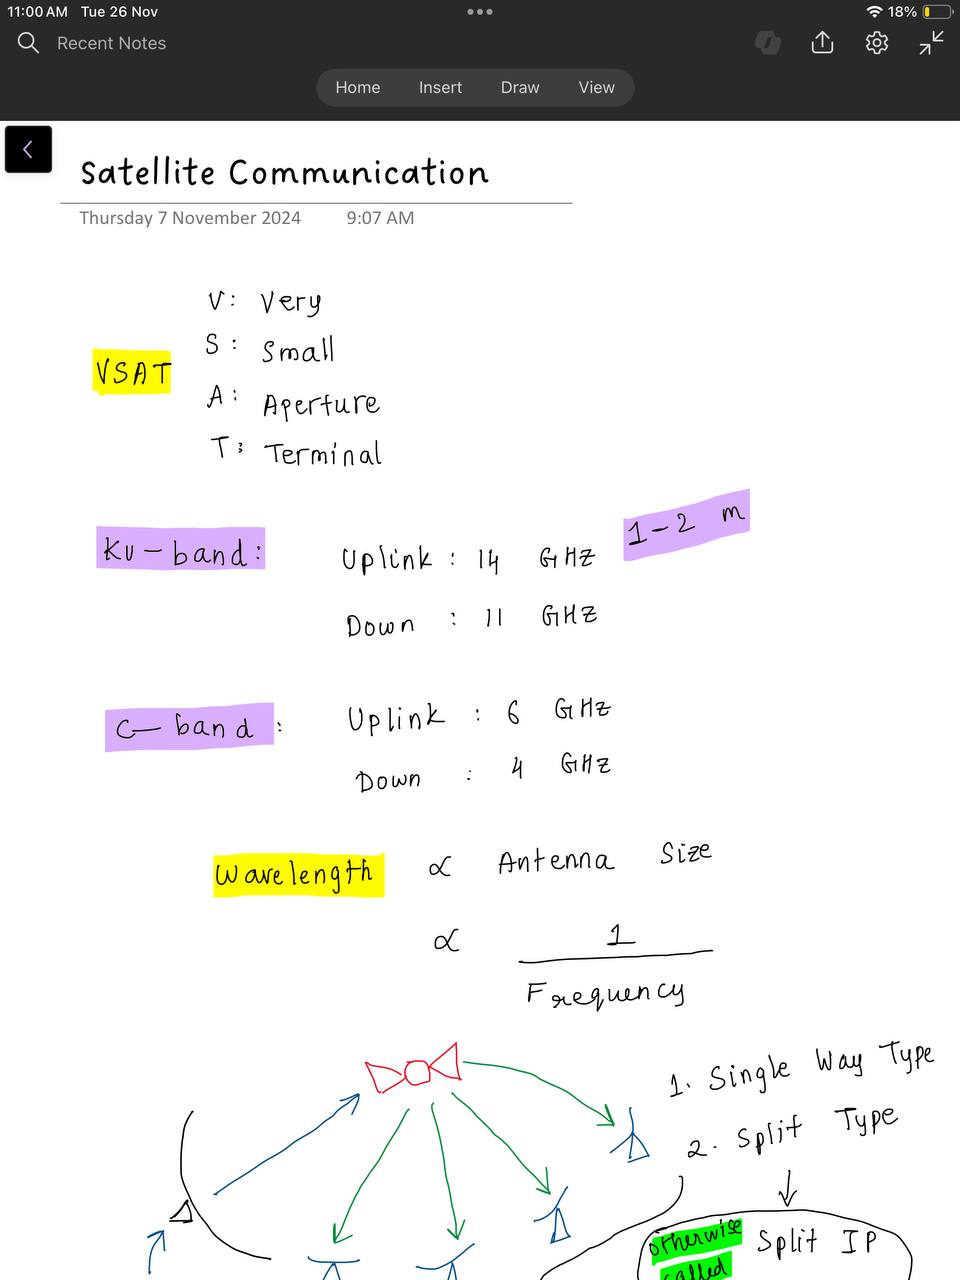 11:00 AM Tue 26 Nov 18%
Recent Notes
Home Insert Draw View
Satellite Communication
Thursday 7 November 2024 9:07 AM
V: Very
S: Small
VSAT
A: Aperture
T: Terminal
Ku-band: Uplink: 14 GHz 1-2 m
Down : 11 GHz
C-band: Uplink : 6 GHz
Down : 4 GHz
Wavelength ∝ Antenna Size
∝ 1
Frequency
1. Single Way Type
2. Split Type
otherwise Split IP
called